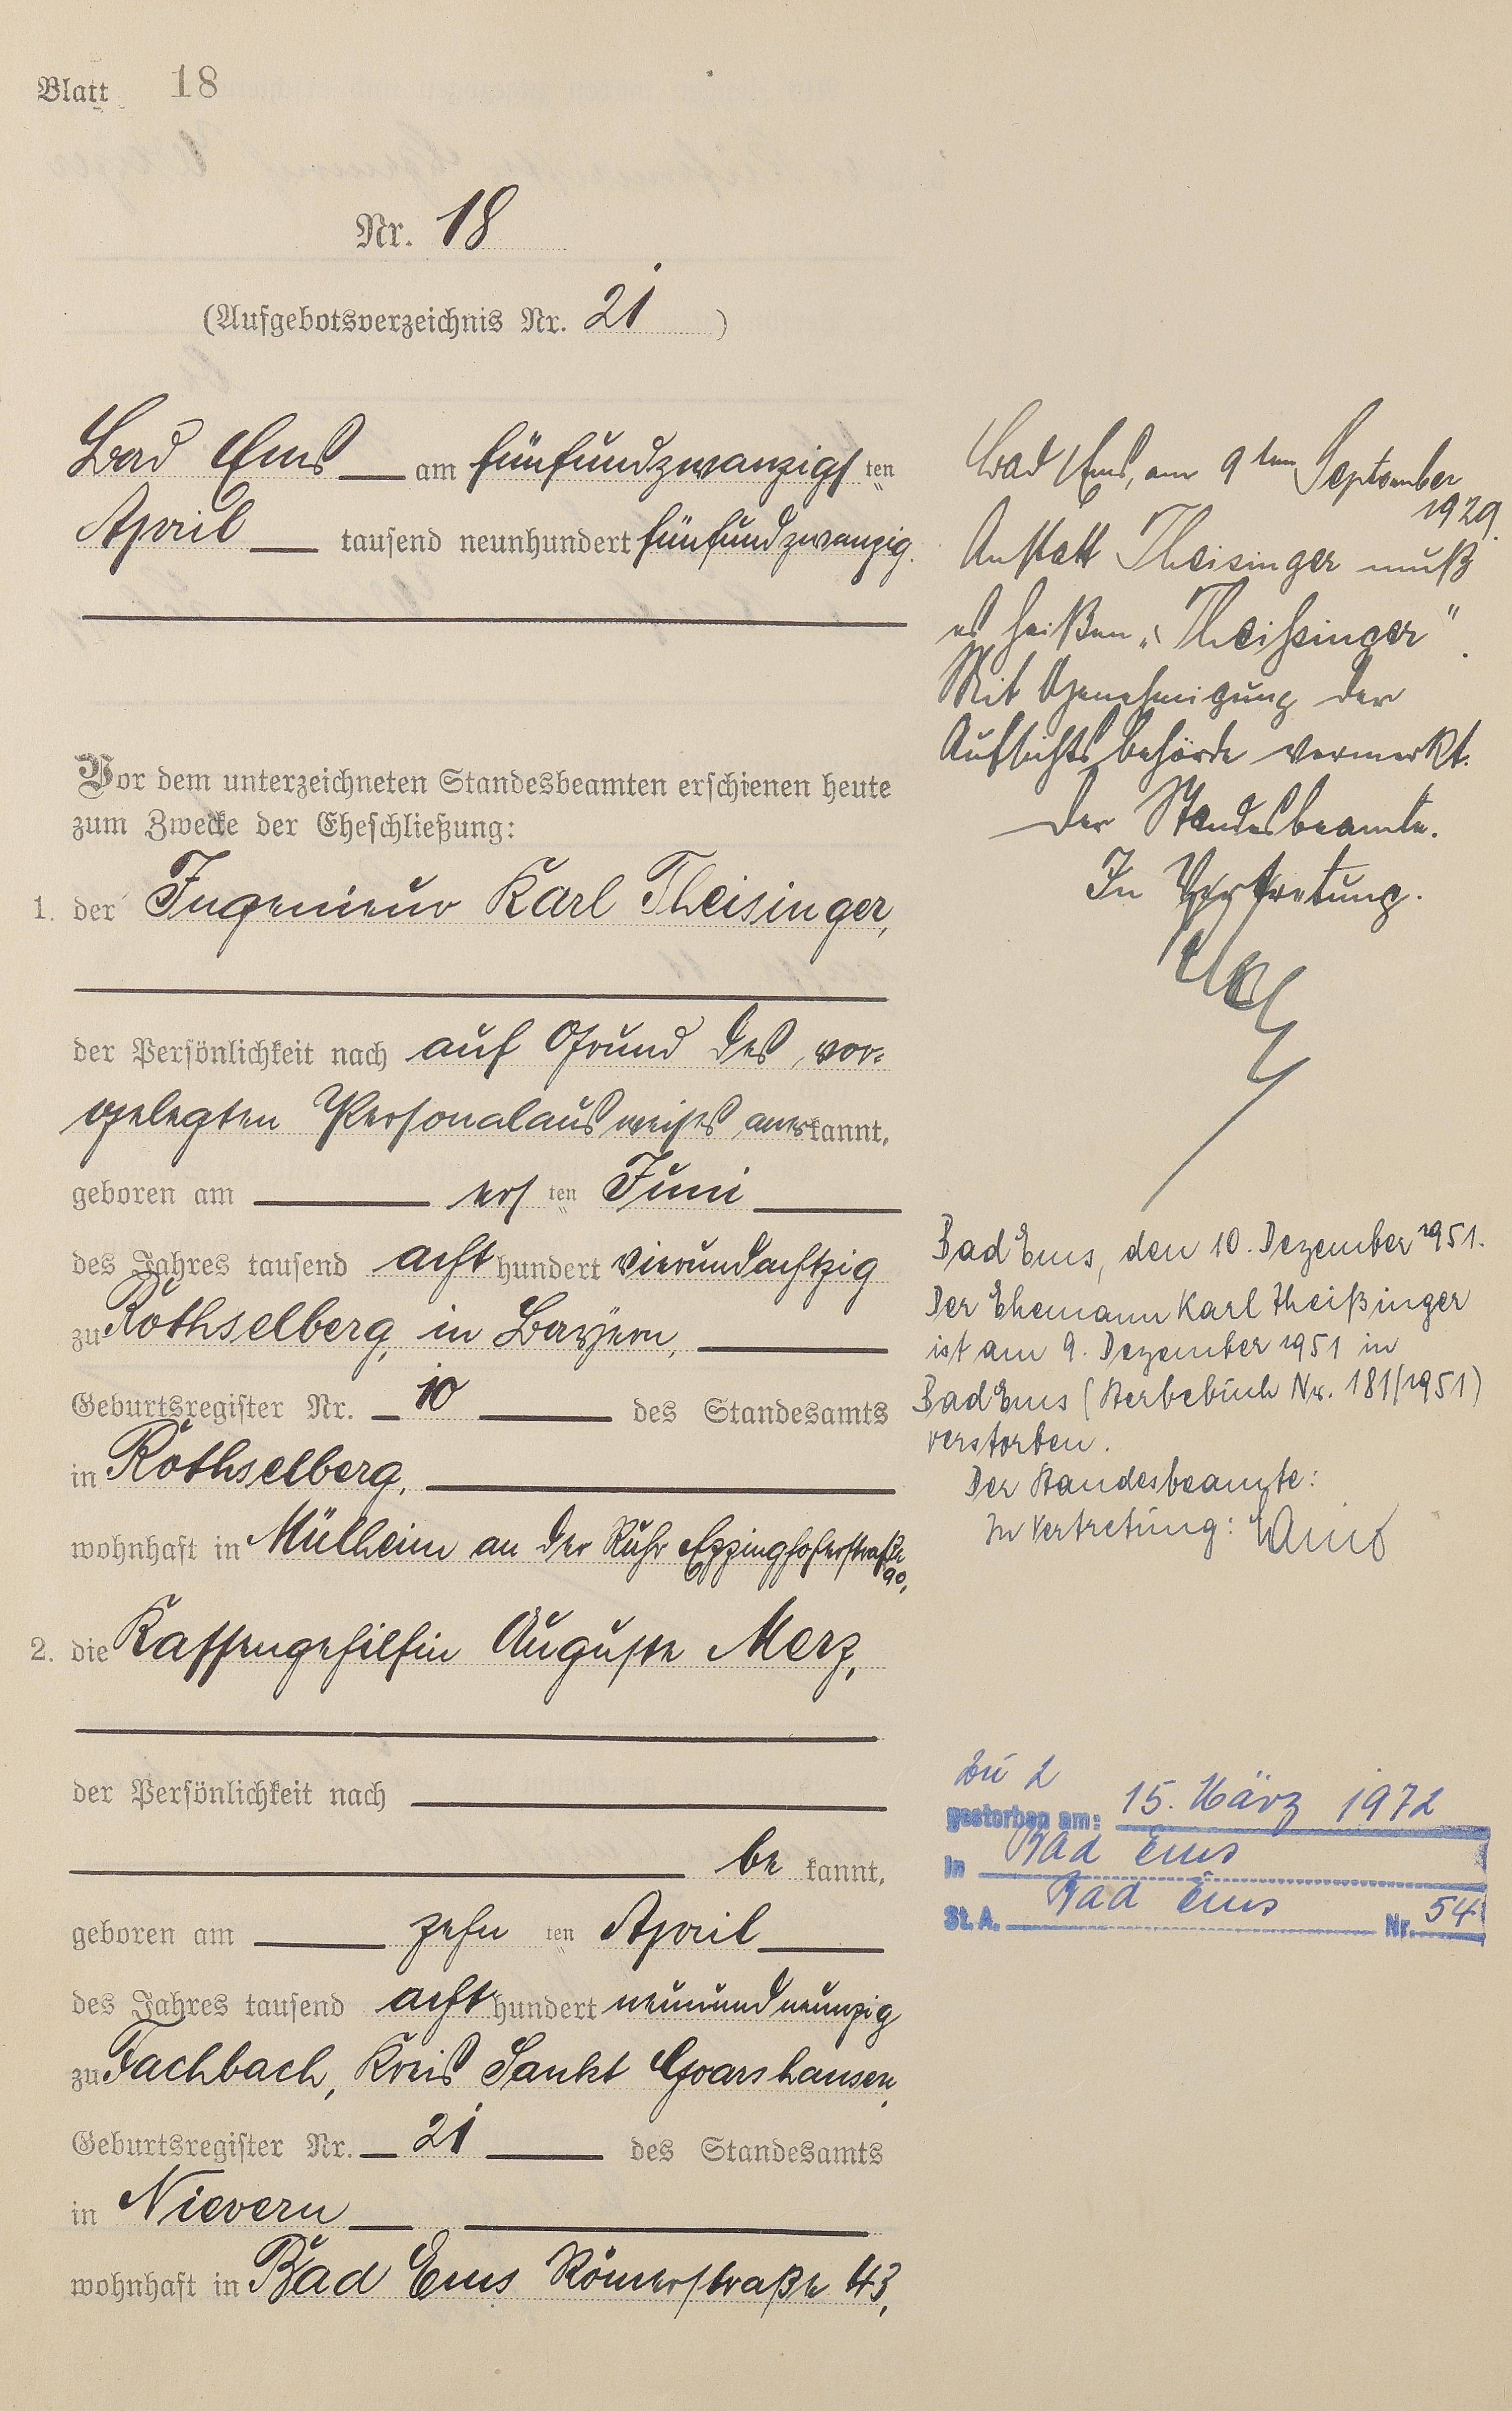 Blatt 18
Nr. 18
(Aufgebotsverzeichnis Nr. 21)
Bad Ems — am fünfundzwanzigsten
April — tausend neunhundert fünfundzwanzig.
Vor dem unterzeichneten Standesbeamten erschienen heute
zum Zwecke der Eheschließung:
1. der Ingenieur Karl Theisinger,
der Persönlichkeit nach auf Grund des vor-
gelegten Personalausweises anerkannt,
geboren am — ersten Juni —
des Jahres tausend achthundert vierundachtzig
zu Rothselberg, in Bayern, —
Geburtsregister Nr. — 10 — des Standesamts
in Rothselberg, —
wohnhaft in Mülheim an der Ruhr Eppinghoferstraße
90,
2. die Kassengehilfin Auguste Merz,
der Persönlichkeit nach —
— bekannt,
geboren am — zehnten April —
des Jahres tausend achthundert neunundneunzig
zu Fachbach, Kreis Sankt Goarshausen,
Geburtsregister Nr. — 21 — des Standesamts
in Nievern —
wohnhaft in Bad Ems Römerstraße 43,
Bad Ems, am 9ten September
1929.
Anstatt Theisinger muß
es heißen „Theißinger".
Mit Genehmigung der
Aufsichtsbehörde vermerkt.
Der Standesbeamte.
In Vertretung.
Bad Ems, den 10. Dezember 1951.
Der Ehemann Karl Theißinger
ist am 9. Dezember 1951 in
Bad Ems (Sterbebuch Nr. 181/1951)
verstorben.
Der Standesbeamte:
In Vertretung:
Zu 2
gestorben am: 15. März 1972
in Bad Ems
St. A. Bad Ems Nr. 54